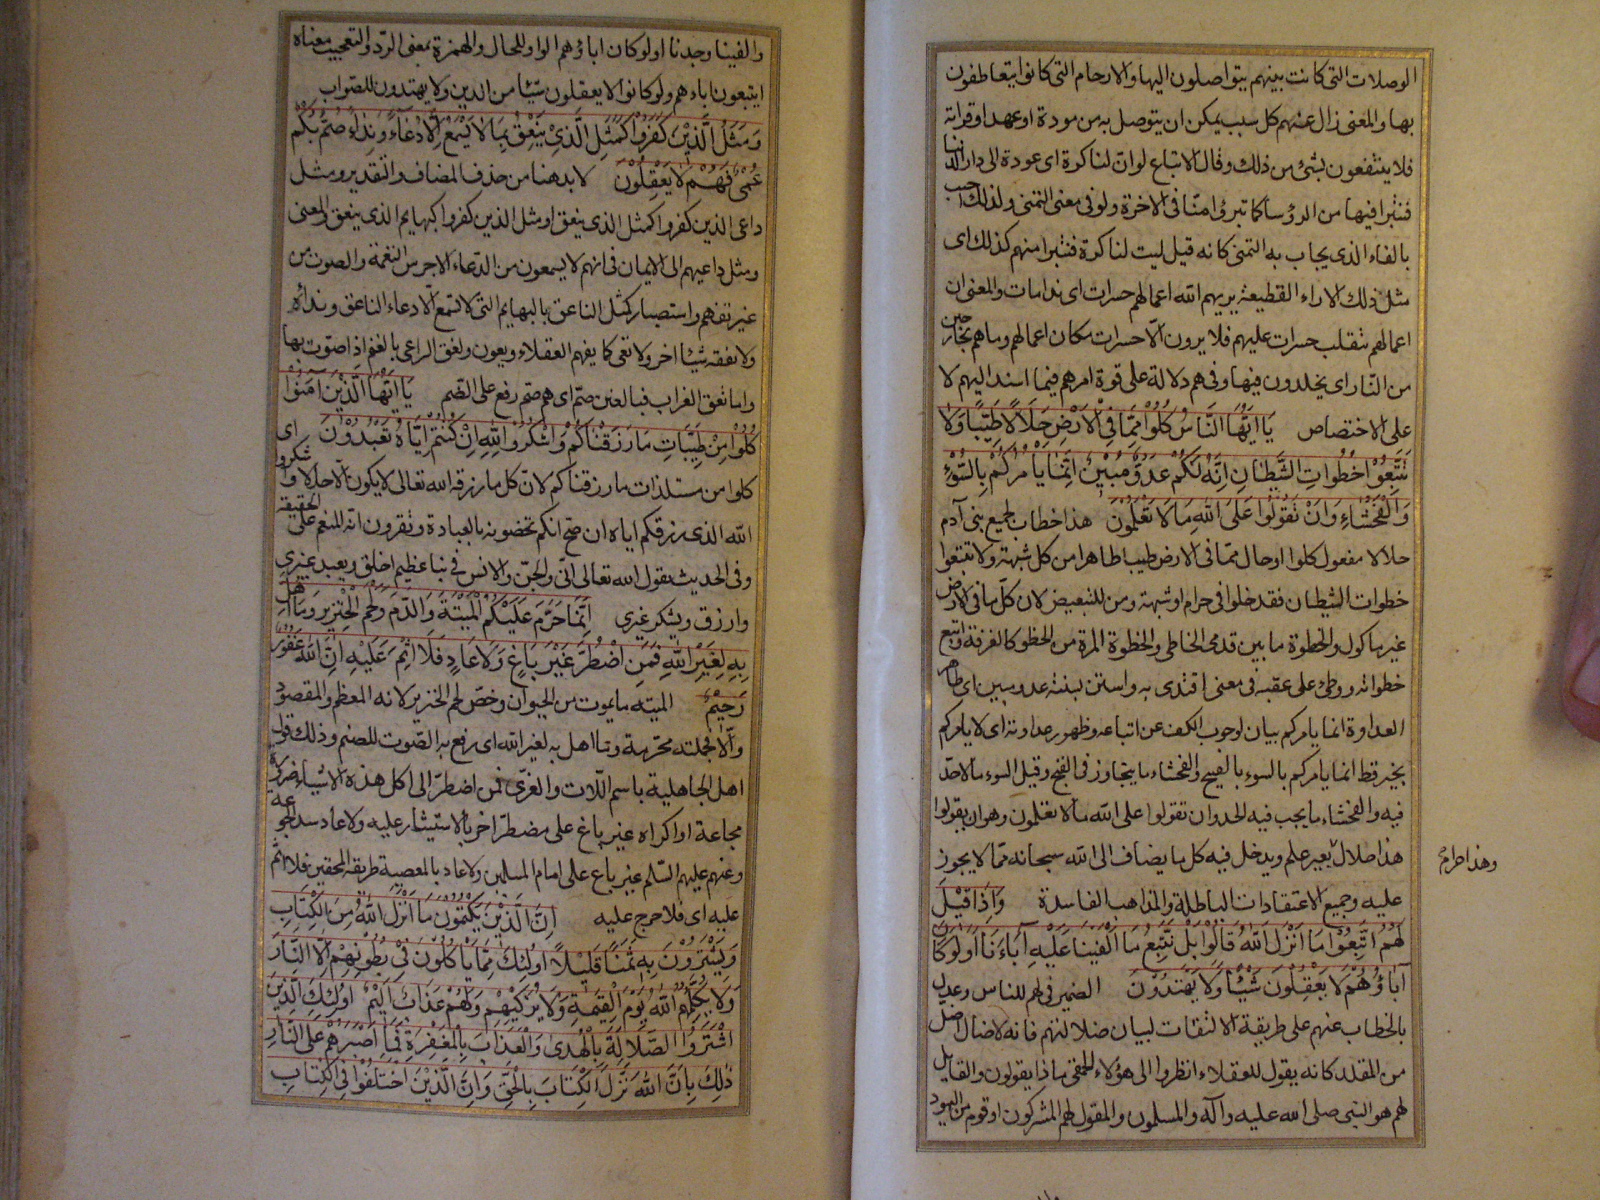 الوصلات التي كانت بينهم يتواصلون اليها والارحام التي كانوا يتعاطفون
بها والمعنى زال عنهم كل سبب يمكن ان يتوصل به من مودة او عهد او قرابة
فلا ينتفعون بشئ من ذلك وقال الاتباع لو ان لنا كرة اى عودة الى دار الدنيا
فنتبرا فيها من الرؤسا كما تبرؤا منا فى الاخرة ولو فى معنى التمنى ولذلك اجيب
بالفاء الذى يجاب به التمنى كانه قيل ليت لنا كرة فنتبرا منهم كذلك اى
مثل ذلك الاراء الفظيعة يريهم الله اعمالهم حسرات اى ندامات والمعنى ان
اعمالهم تنقلب حسرات عليهم فلا يرون الا حسرات مكان اعمالهم وما هم بخارجين
من النار اى يخلدون فيها وفى هم دلالة على قوة امرهم فيما اسند اليهم لا
على الاختصاص يَا اَيُّهَا النَّاسُ كُلُوا مِمَّا فِى الْاَرْضِ حَلَالًا طَيِّبًا وَلَا
تَتَّبِعُوا خُطُوَاتِ الشَّيْطَانِ اِنَّهُ لَكُمْ عَدُوٌّ مُبِيْنٌ اِنَّمَا يَاْمُرُكُمْ بِالسُّوْءِ
وَالْفَحْشَاءِ وَاَنْ تَقُوْلُوا عَلَى اللّٰهِ مَا لَا تَعْلَمُوْنَ هذا خطاب لجميع بنى آدم
حلالا مفعول كلوا او حال مما فى الارض طيبا طاهرا من كل شبهة ولا تتبعوا
خطوات الشيطان فتدخلوا فى حرام او شبهة ومن للتبعيض لان كل ما فى الارض
غير ماكول والخطوة ما بين قدمى الخاطى والخطوة المرة من الخطو كالغرفة واتبع
خطواته ووطئ على عقبه فى معنى اقتدى به واستن بسنته عدو مبين اى ظاهر
العداوة انما يامركم بيان لوجوب الكف عن اتباعه وظهور عداوته اى لا يامركم
بخير قط انما يامركم بالسوء بالقبيح والفحشاء ما يتجاوز فى القبح وقيل السوء ما لا حد
فيه والفحشاء ما يجب فيه الحد وان تقولوا على الله ما لا تعلمون وهو ان يقولوا
هذا حلال بغير علم ويدخل فيه كل ما يضاف الى الله سبحانه مما لا يجوز
وهذا حرام
عليه وجميع الاعتقادات الباطلة والمذاهب الفاسدة وَاِذَا قِيْلَ
لَهُمُ اتَّبِعُوْا مَا اَنْزَلَ اللّٰهُ قَالُوْا بَلْ نَتَّبِعُ مَا اَلْفَيْنَا عَلَيْهِ آبَاءَنَا اَوَلَوْ كَانَ
آبَاؤُهُمْ لَا يَعْقِلُوْنَ شَيْئًا وَلَا يَهْتَدُوْنَ الضمير فى لهم للناس وعدل
بالخطاب عنهم على طريقة الالتفات لبيان ضلالتهم فانه لا ضال اضل
من المقلد كانه يقول للعقلاء انظروا الى هؤلاء الحمقى ماذا يقولون والقايل
لهم هو النبى صلى الله عليه وآله والمسلمون والمقول لهم المشركون او قوم من اليهود
والفينا وجدنا اولو كان اباؤهم الواو للحال والهمزة بمعنى الرد والتعجيب معناه
ايتبعون اباءهم ولو كانوا لا يعقلون شيئا من الدين ولا يهتدون للصواب
وَمَثَلُ الَّذِيْنَ كَفَرُوْا كَمَثَلِ الَّذِى يَنْعِقُ بِمَا لَا يَسْمَعُ اِلَّا دُعَاءً وَنِدَاءً صُمٌّ بُكْمٌ
عُمْىٌ فَهُمْ لَا يَعْقِلُوْنَ لا بد هنا من حذف المضاف والتقدير ومثل
داعى الذين كفروا كمثل الذى ينعق او مثل الذين كفروا كبهايم الذى ينعق والمعنى
ومثل داعيهم الى الايمان فى انهم لا يسمعون من الدعاء الا جرس النغمة والصوت من
غير تفهم واستبصار كمثل الناعق بالبهايم التى لا تسمع الا دعاء الناعق ونداءه
ولا تفقه شيئا اخر ولا تعى كما يفهم العقلاء ويعون ونعق الراعى بالغنم اذا صوت بها
واما نغق الغراب فبالغين صم اى هم صم رفع على الذم يَا اَيُّهَا الَّذِيْنَ آمَنُوْا
كُلُوْا مِنْ طَيِّبَاتِ مَا رَزَقْنَاكُمْ وَاشْكُرُوْا لِلّٰهِ اِنْ كُنْتُمْ اِيَّاهُ تَعْبُدُوْنَ اى
كلوا من مستلذات ما رزقناكم لان كل ما رزقه الله تعالى لا يكون الا حلالا واشكروا
الله الذى رزقكم اياه ان صح انكم تخصونه بالعبادة وتقرون انه المنعم على الحقيقة
وفى الحديث يقول الله تعالى انى والجن والانس فى نبا عظيم اخلق ويعبد غيرى
وارزق ويشكر غيرى اِنَّمَا حَرَّمَ عَلَيْكُمُ الْمَيْتَةَ وَالدَّمَ وَلَحْمَ الْخِنْزِيْرِ وَمَا اُهِلَّ
بِهِ لِغَيْرِ اللّٰهِ فَمَنِ اضْطُرَّ غَيْرَ بَاغٍ وَلَا عَادٍ فَلَا اِثْمَ عَلَيْهِ اِنَّ اللّٰهَ غَفُوْرٌ
رَحِيْمٌ الميتة ما يموت من الحيوان وخص لحم الخنزير لانه المعظم والمقصود
والا فجملته محرمة وما اهل به لغير الله اى رفع به الصوت للصنم وذلك قول
اهل الجاهلية باسم اللات والعزى فمن اضطر الى اكل هذه الاشياء ضرورة
مجاعة او اكراه غير باغ على مضطر اخر بالاستيثار عليه ولا عاد سد الجوعة
وعنهم عليهم السلم غير باغ على امام المسلمين ولا عاد بالمعصية طريقة المحقين فلا اثم
عليه اى فلا حرج عليه اِنَّ الَّذِيْنَ يَكْتُمُوْنَ مَا اَنْزَلَ اللّٰهُ مِنَ الْكِتَابِ
وَيَشْتَرُوْنَ بِهِ ثَمَنًا قَلِيْلًا اُولٰئِكَ مَا يَاْكُلُوْنَ فِىْ بُطُوْنِهِمْ اِلَّا النَّارَ
وَلَا يُكَلِّمُهُمُ اللّٰهُ يَوْمَ الْقِيٰمَةِ وَلَا يُزَكِّيْهِمْ وَلَهُمْ عَذَابٌ اَلِيْمٌ اُولٰئِكَ الَّذِيْنَ
اشْتَرَوُا الضَّلَالَةَ بِالْهُدٰى وَالْعَذَابَ بِالْمَغْفِرَةِ فَمَا اَصْبَرَهُمْ عَلَى النَّارِ
ذٰلِكَ بِاَنَّ اللّٰهَ نَزَّلَ الْكِتَابَ بِالْحَقِّ وَاِنَّ الَّذِيْنَ اخْتَلَفُوْا فِى الْكِتَابِ